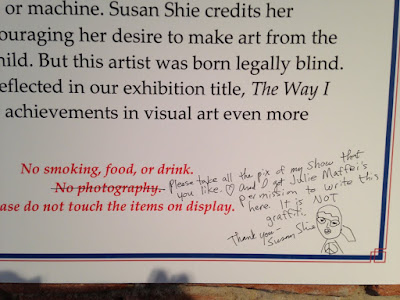 or machine. Susan Shie credits her
ouraging her desire to make art from the
hild. But this artist was born legally blind.
eflected in our exhibition title, The Way I
achievements in visual art even more
No smoking, food, or drink.
No photography. Please take all the pix of my show that
you like. ♡ And I got Julie Maffei's
permission to write this
here. It is NOT
graffiti.
ase do not touch the items on display.
Thank you—
Susan Shie